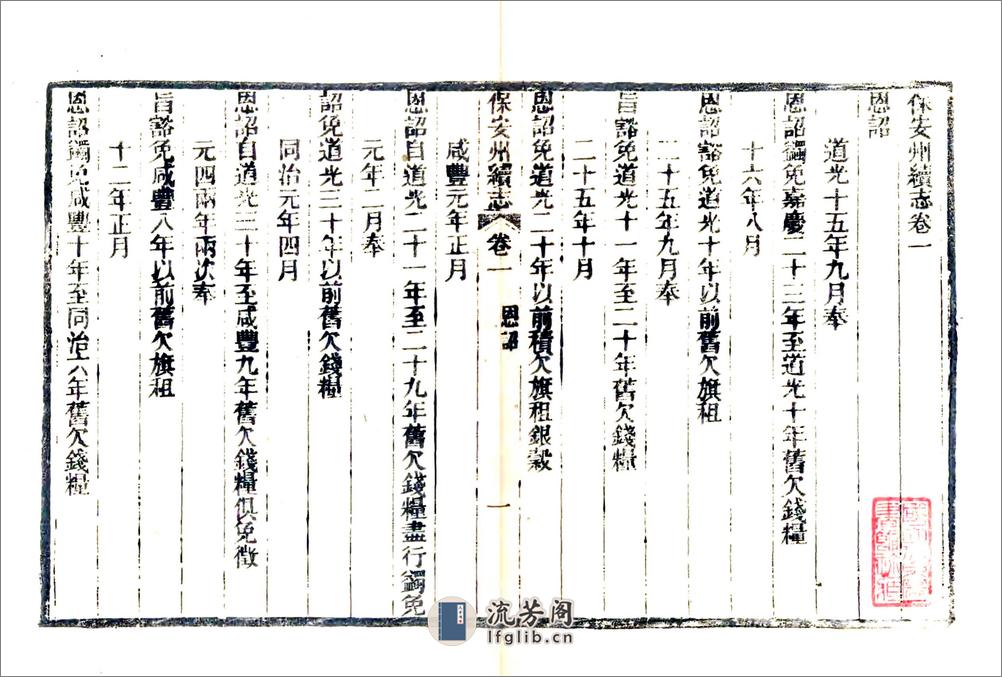 保安州續志卷一
恩詔
道光十五年九月奉
恩詔蠲免嘉慶二十三年至道光十年舊欠錢糧
十六年八月
恩詔豁免道光十年以前舊欠旗租
二十五年九月奉
旨豁免道光十一年至二十年舊欠錢糧
二十五年十月
恩詔免道光二十年以前積欠旗租銀穀
保安州續志 卷一 恩詔 一
咸豐元年正月
恩詔自道光二十一年至二十九年舊欠錢糧盡行蠲免
元年二月奉
詔免道光三十年以前舊欠錢糧
同治元年四月
恩詔自道光三十年至咸豐九年舊欠錢糧俱免徵
元四兩年兩次奉
旨豁免咸豐八年以前舊欠旗租
十二年正月
恩詔蠲免咸豐十年至同治六年舊欠錢糧
流芳阁
lfglib.cn